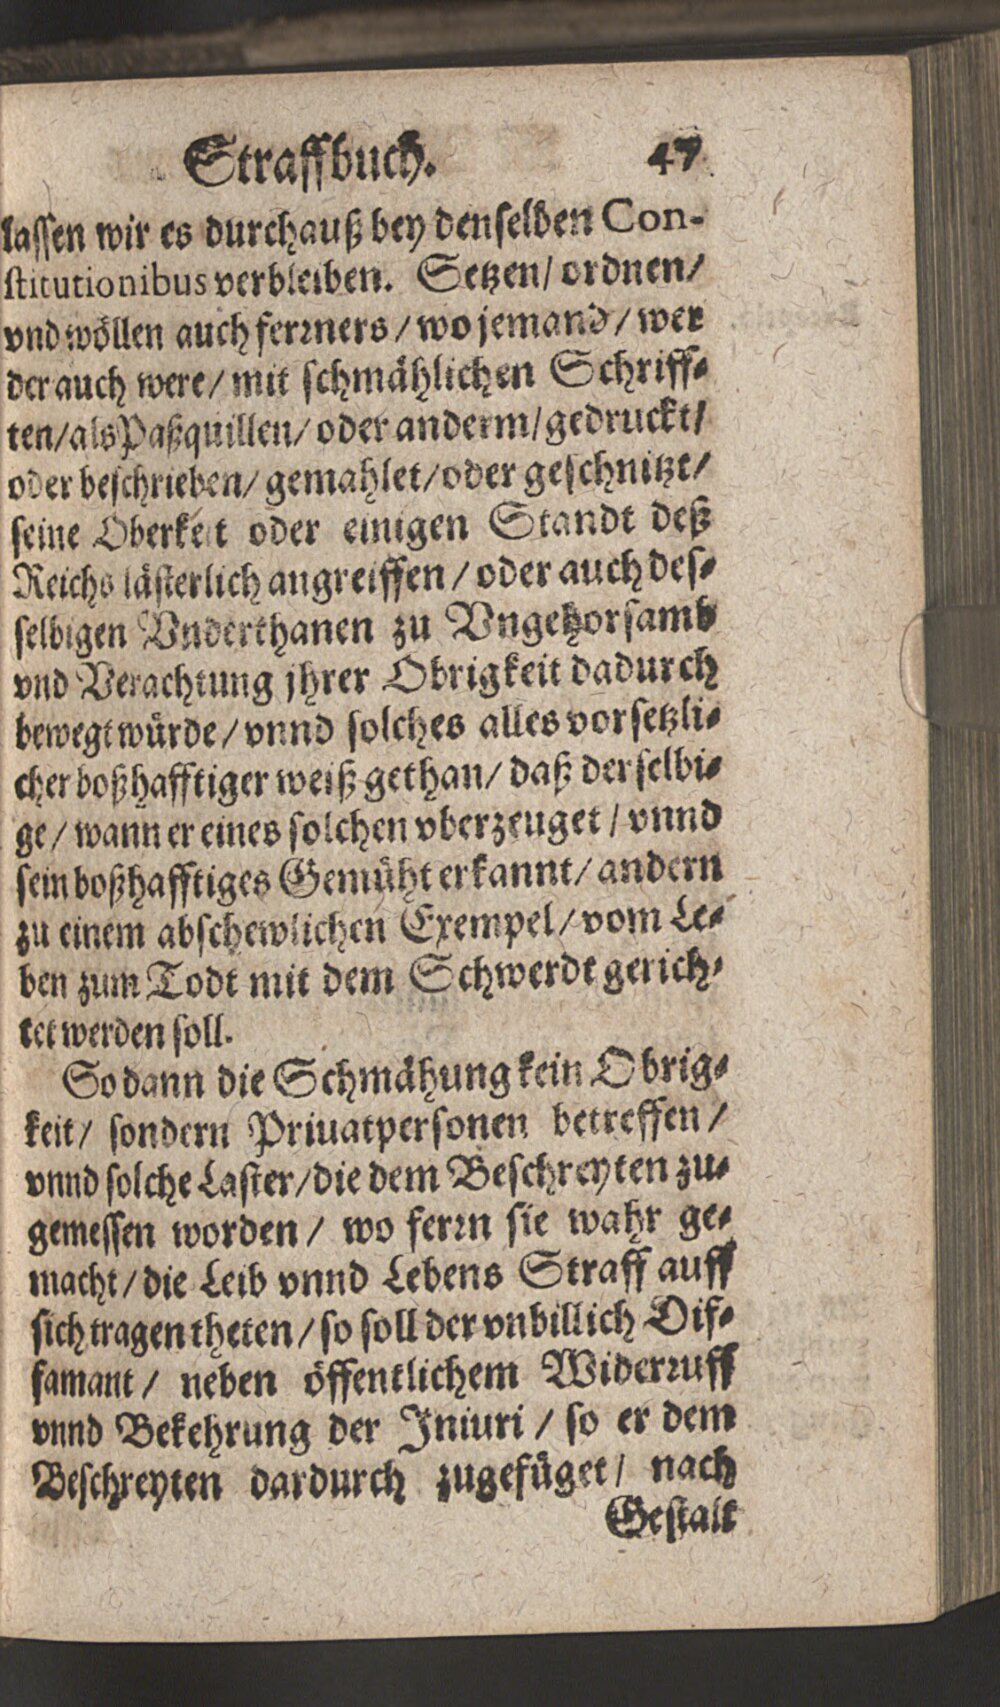 Straffbuch. 47
lassen wir es durchauß bey denselben Con-
stitutionibus verbleiben. Setzen/ ordnen/
vnd wöllen auch ferrners/ wo jemand/ wer
der auch were/ mit schmählichen Schriff-
ten/ als Paßquillen/ oder anderm/ gedruckt/
oder beschrieben/ gemahlet/ oder geschnitzt/
seine Oberkeit oder einigen Standt deß
Reichs lästerlich angreiffen/ oder auch des-
selbigen Vnderthanen zu Vngehorsamb
vnd Verachtung jhrer Obrigkeit dadurch
bewegt würde/ vnnd solches alles vorsetzli-
cher boßhafftiger weiß gethan/ daß derselbi-
ge/ wann er eines solchen vberzeuget/ vnnd
sein boßhafftiges Gemüht erkannt/ andern
zu einem abschewlichen Exempel/ vom Le-
ben zum Todt mit dem Schwerdt gerich-
tet werden soll.
So dann die Schmähung kein Obrig-
keit/ sondern Priuatpersonen betreffen/
vnnd solche Laster/ die dem Beschreyten zu-
gemessen worden/ wo ferrn sie wahr ge-
macht/ die Leib vnnd Lebens Straff auff
sich tragen theten/ so soll der vnbillich Dif-
famant/ neben öffentlichem Widerruff
vnnd Bekehrung der Iniuri/ so er dem
Beschreyten dardurch zugefüget/ nach
Gestalt